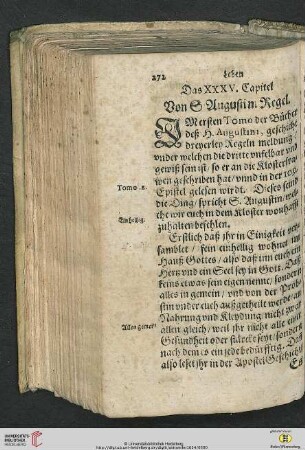 272 Leben
Das XXXV. Capitel
Von S Augustini Regel.
IM ersten Tomo der Bücher
deß H. Augustini, geschicht
dreyerley Regeln meldung
vnder welchen die dritte vnfelbar vnd
gewiß sein ist / so er an die Klosterfraw
wen geschriben hat / vnnd in der 109.
Epistel gelesen wirdt. Dieses seind
die Ding / spricht S. Augustin / wel-
che wir euch in dem Kloster wonhafft
zuhalten befehlen.
Erstlich daß jhr in Einigkeit ver-
samblet / sein einhellig wohnet im
Hauß Gottes / also daß inn euch ein
Hertz vnd ein Seel sey in Gott. Daß
keins etwas sein eigen nenne / sonders
alles in gemein / vnd von der Prob-
stin vnder euch außgetheilt werde / an
Nahrung vnn Kleydung nicht zwar
allen gleich / weil jhr nicht alle einer
Gesundheit oder stärcke seyt / sonders
nach dem es ein jede bedürffig. Dañ
also leset jhr in der Apostel Geschicht
Es
Tomo 2.
Einhellig.
Alles gemein
UNIVERSITÄTS-
BIBLIOTHEK
HEIDELBERG
© Universitätsbibliothek Heidelberg